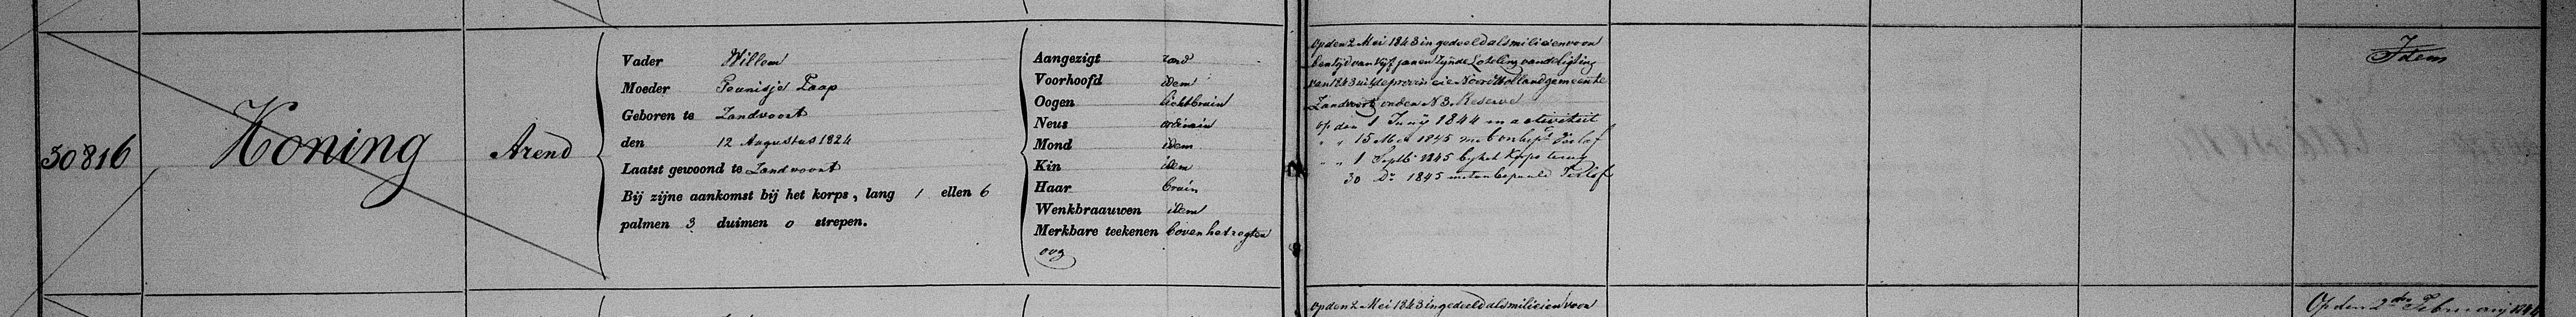 30816
Koning
Arend
Vader Willem
Moeder Teunisje Paap
Geboren te Zandvoort
den 12 Augustus 1824
Laatst gewoond te Zandvoort
Bij zijne aankomst bij het korps, lang 1 ellen 6
palmen 3 duimen 0 strepen.
Aangezigt rond
Voorhoofd idem
Oogen lichtbruin
Neus ordinair
Mond idem
Kin idem
Haar bruin
Wenkbraauwen idem
Merkbare teekenen boven het regter
oog
Op den 2 Mei 1843 ingedeeld als milicien voor
den tijd van vijf jaren zijnde Loteling van de ligting
van 1843 uit de provincie Noord Holland gemeente
Zandvoort onder No 3. Reserve
op den 1 Junij 1844 in activiteit
" " 15 Mei 1845 met onbept Verlof
" " 1 Septb 1845 by het Korps terug
30 Do 1845 met onbepaald Verlof
Idem
Op den 2 Mei 1843 ingedeeld als milicien voor
Op den 2den February 1844